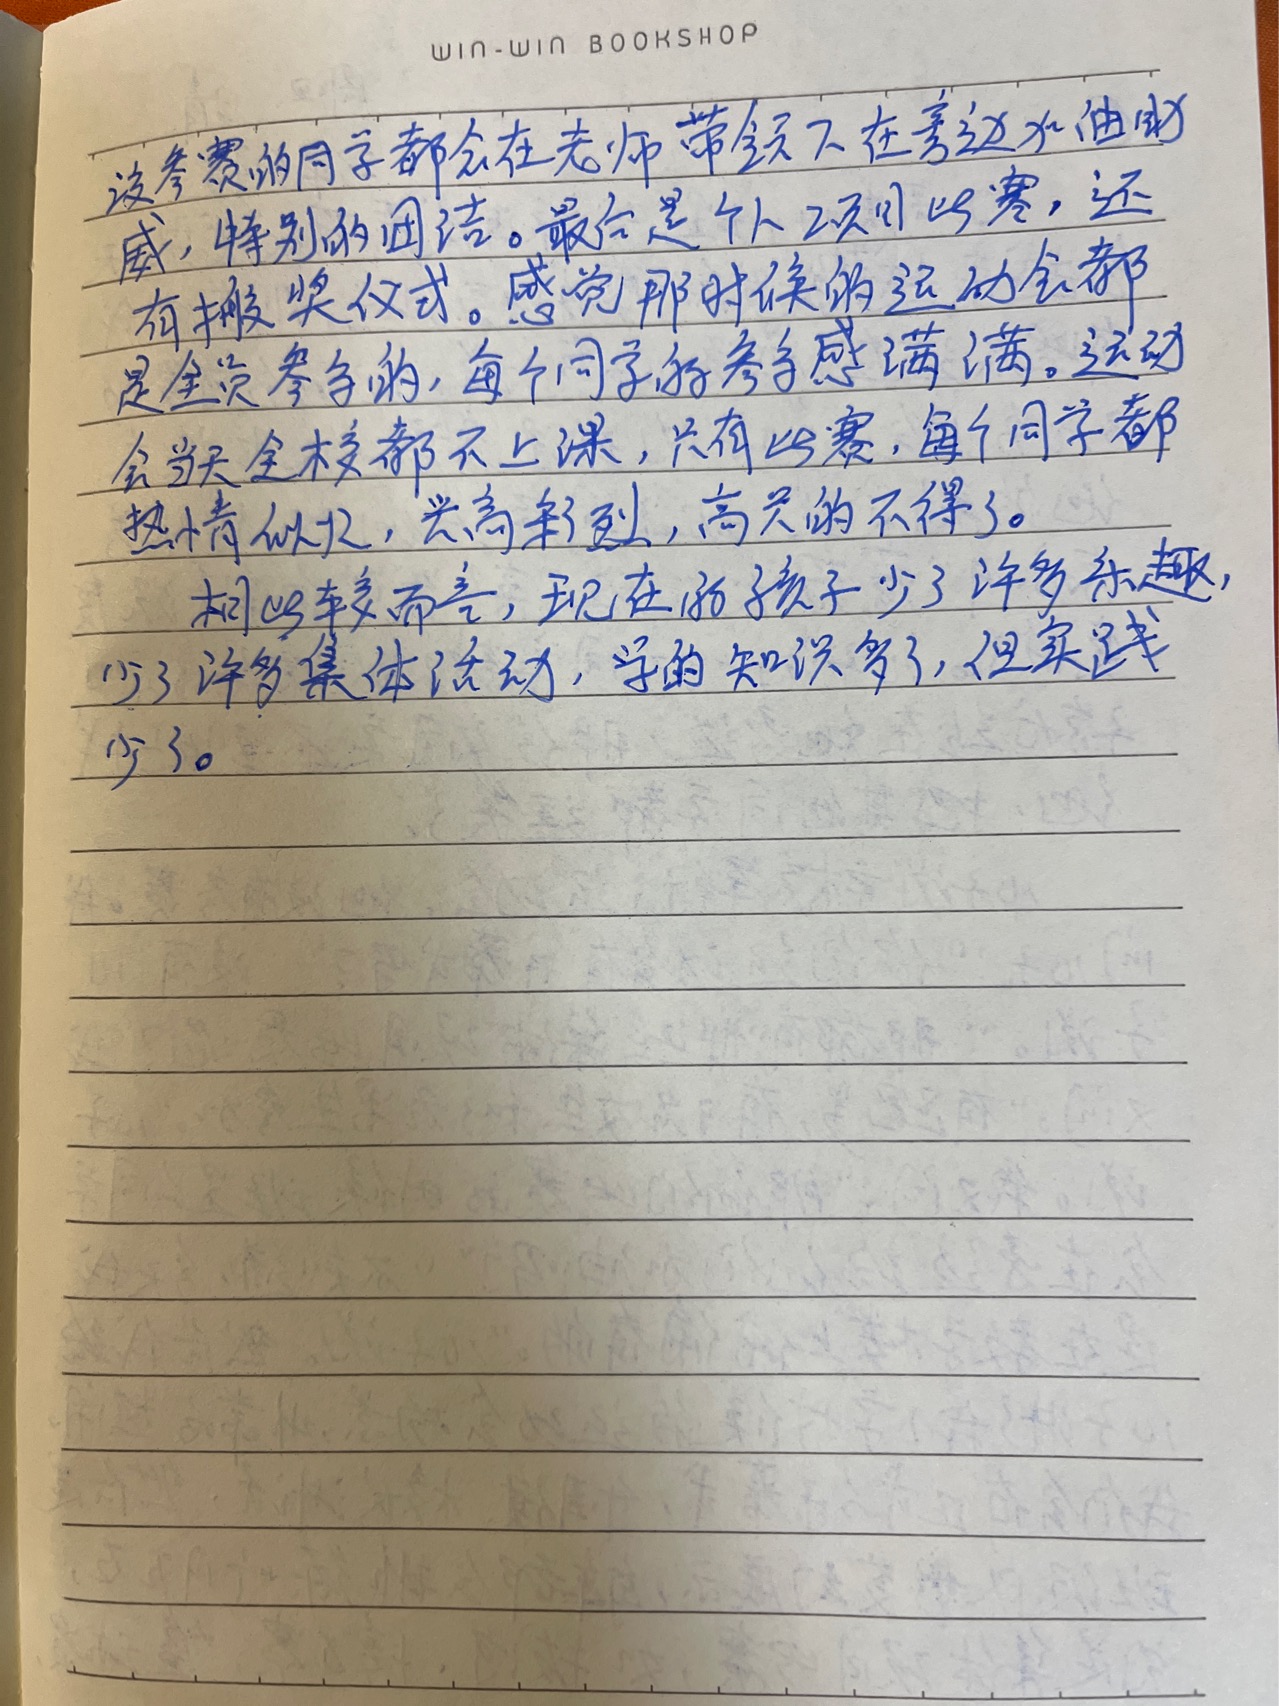 WIN-WIN BOOKSHOP
没参赛的同学都会在老师带领下在旁边加油助
威，特别的团结。最后是个人项目比赛，还
有搬奖仪式。感觉那时候的运动会都
是全员参与的，每个同学的参与感满满。运动
会当天全校都不上课，只有比赛，每个同学都
热情似火，兴高彩烈，高兴的不得了。
相比较而言，现在的孩子少了许多乐趣，
少了许多集体活动，学的知识多了，但实践
少了。